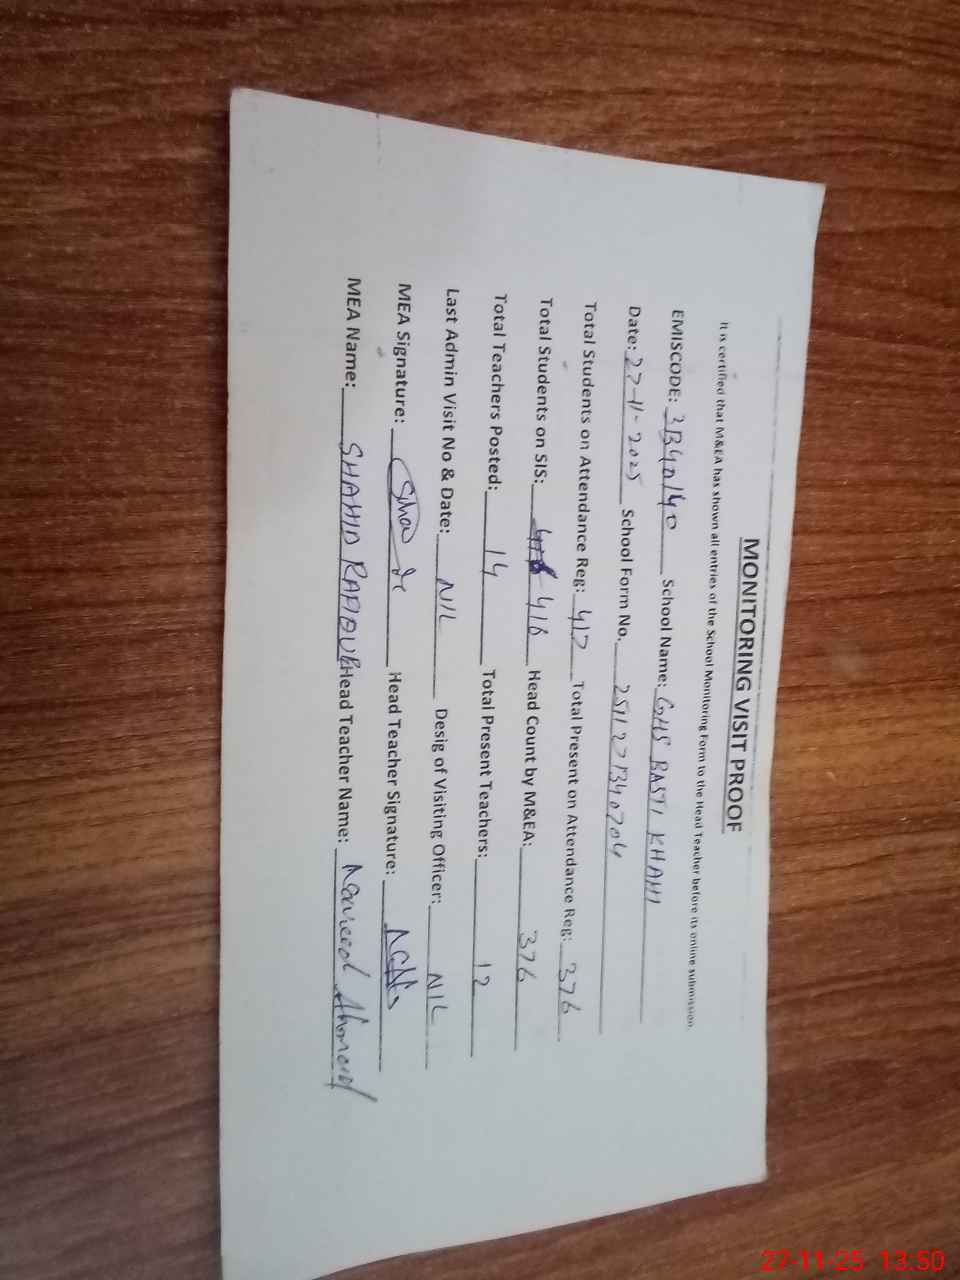 MONITORING VISIT PROOF
It is certified that M&EA has shown all entries of the School Monitoring Form to the Head Teacher before its online submission.
EMISCODE: School Name: GHS BASTI KHAHI
Date: 27-11-2025 School Form No. 2511271340704
Total Students on Attendance Reg: 417 Total Present on Attendance Reg: 376
Total Students on SIS: 416 Head Count by M&EA: 376
Total Teachers Posted: 14 Total Present Teachers: 12
Last Admin Visit No & Date: NIL Desig of Visiting Officer: NIL
MEA Signature: Head Teacher Signature:
MEA Name: SHAHID Head Teacher Name: Naveed Ahmad
27-11-25 13:50